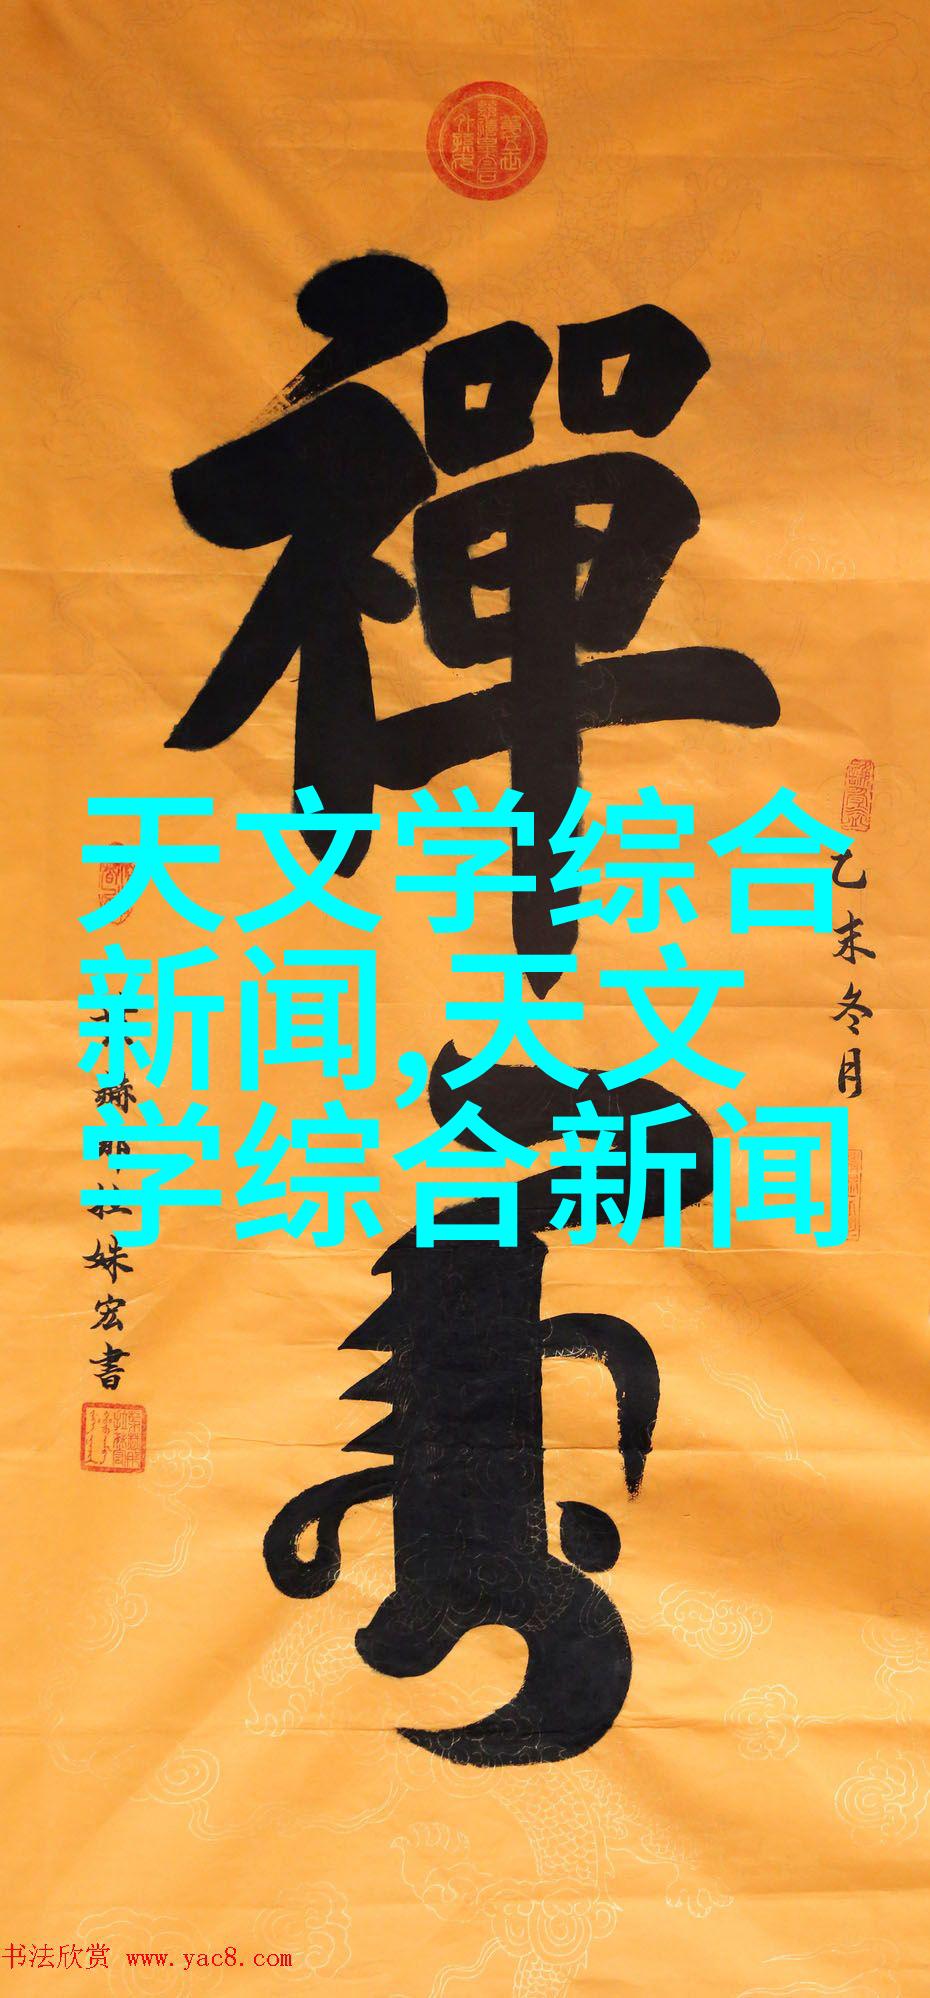 禪
乙未冬月
天文学综合
新闻,天文
学综合新闻
赫那拉姝宏書
书法欣赏 www.yac8.com